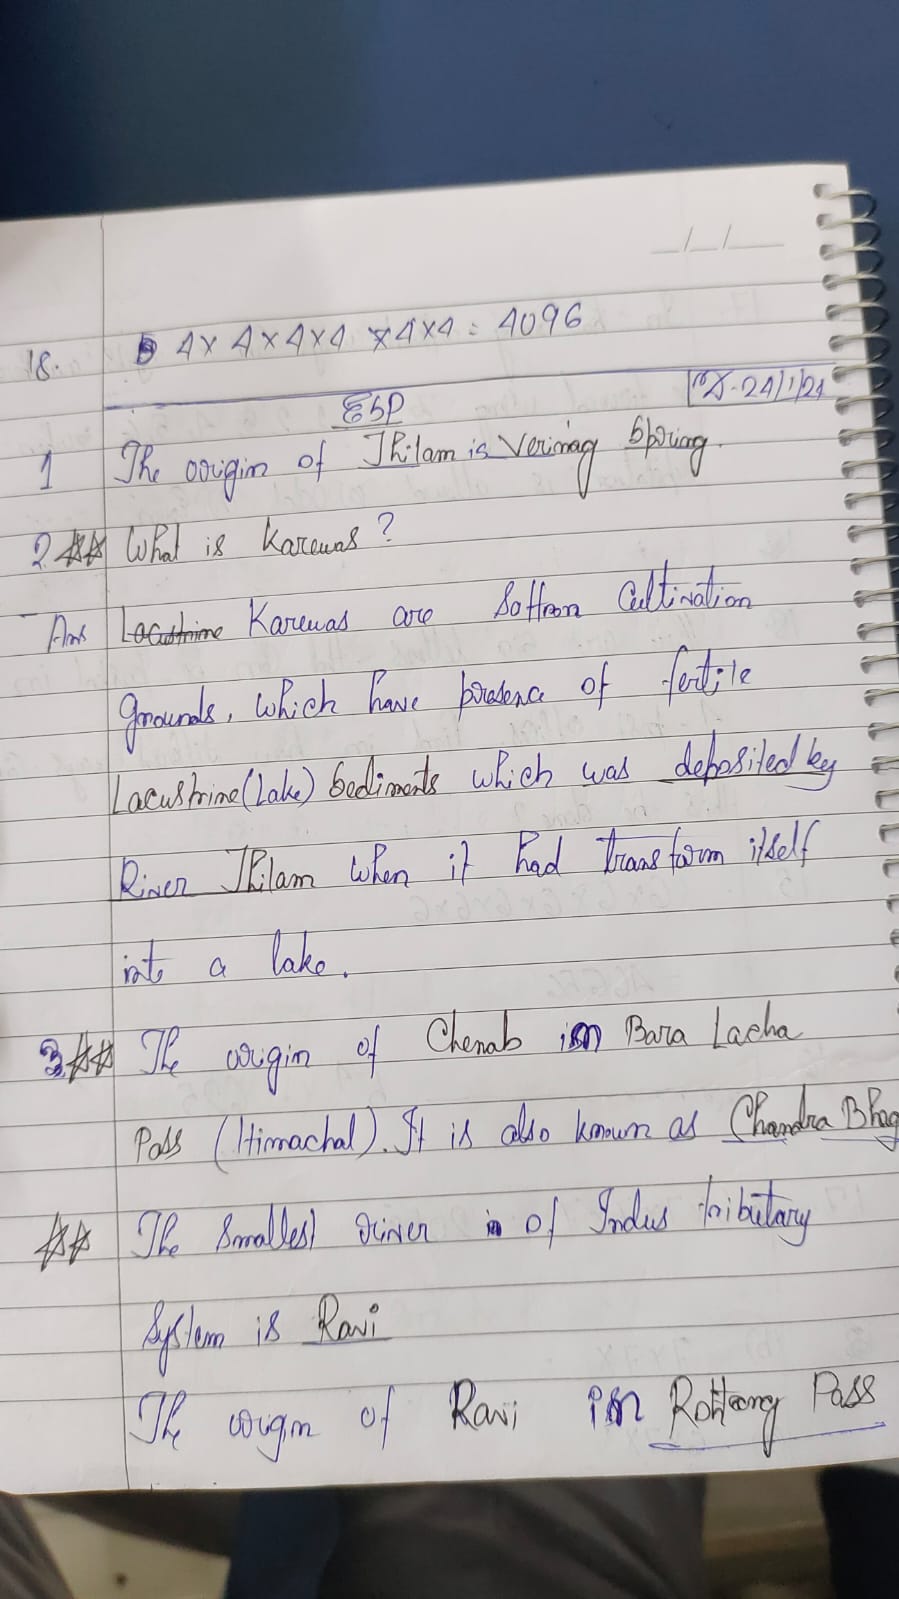 18. 4 x 4 x 4 x 4 x 4 x 4 = 4096
24/1/24
1 The origin of Jhilam is Verinag Spring.
2 What is Karewas?
Ans Lacustrine Karewas are Saffron Cultivation
grounds, which have presence of fertile
Lacustrine (Lake) Sediments which was deposited by
River Jhilam when it had transform itself
into a lake.
3. The origin of Chenab in Bara Lacha
Pass (Himachal). It is also known as Chandra Bhag
The Smallest river of Indus tributary
System is Ravi
The origin of Ravi in Rohtang Pass